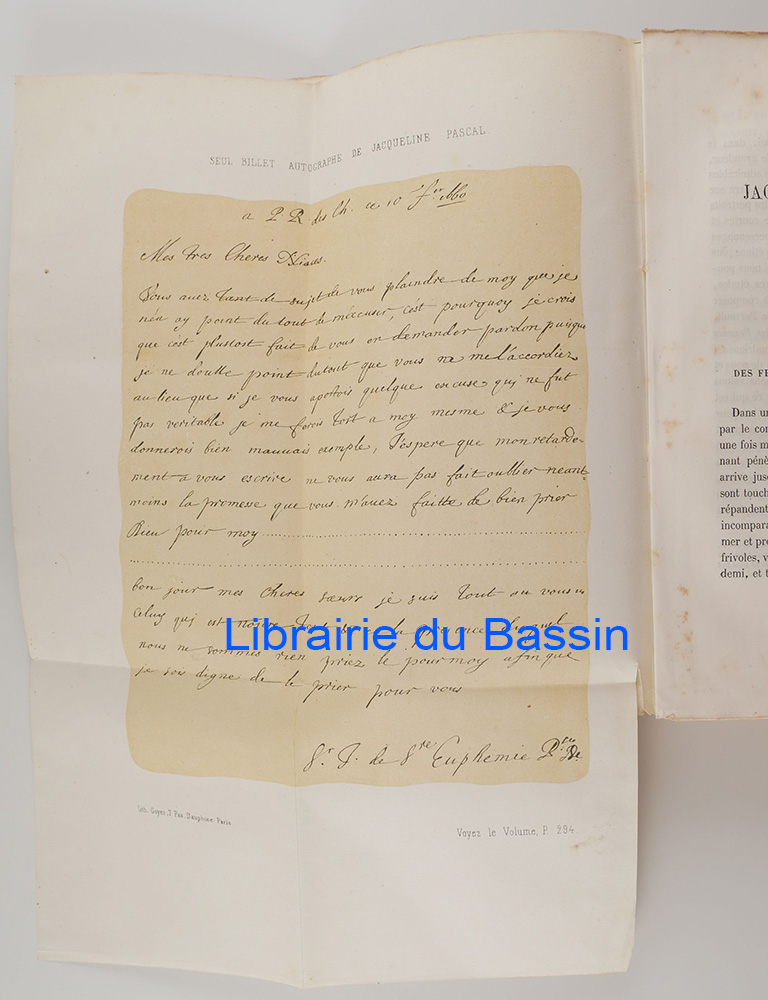 SEUL BILLET AUTOGRAPHE DE JACQUELINE PASCAL.
a P R. des Ch. ce 10 1660
Mes tres Cheres
Vous auez tant de sujet de vous plaindre de moy que je
n'en ay point du tout de m'accuser, c'est pourquoy je crois
que c'est plustost fait de vous en demander pardon puisque
je ne doutte point du tout que vous ne me l'accordiez
au lieu que si je vous aportois quelque excuse qui ne fut
pas veritable je me ferois tort a moy mesme & je vous
donnerois bien mauuais exemple, J'espere que mon retarde-
ment a vous escrire ne vous aura pas fait oublier neant-
moins la promesse que vous m'auez faitte de bien prier
Dieu pour moy
bon jour mes cheres sœurs je suis tout en
Celuy qui est nostre la presence duquel
nous ne sommes rien priez le pour moy afin que
je sois digne de le prier pour vous
Sr J. de Ste Euphemie
Lith. Goyer, 7 Pas. Dauphine Paris
Voyez le Volume, P. 294.
Librairie du Bassin
JAC
DES FE
Dans un
par le con
une fois m
nant pénè
arrive jusc
sont touch
répandent
incompara
mer et pre
frivoles, v
demi, et t